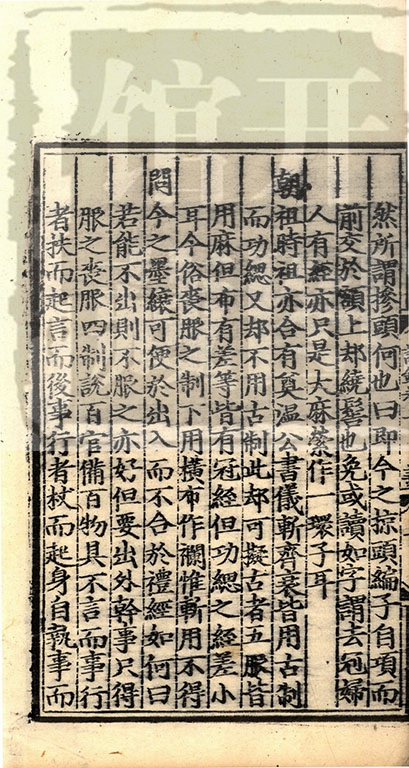 然所謂摻頭何也曰即今之掠頭編子自項而
前交於額上却繞髻也免或讀如字謂去冠婦
人有絰亦只是大麻縈作一環子耳
朝祖時祖亦合有奠温公書儀斬齊衰皆用古制
而功緦又却不用古制此却可擬古者五服皆
用麻但布有差等皆有冠絰但功緦之絰差小
耳今俗喪服之制下用橫布作襴惟斬用不得
問今之墨縗可便於出入而不合於禮經如何曰
若能不出則不服之亦好但要出外幹事只得
服之喪服四制說百官備百物具不言而事行
者扶而起言而後事行者杖而起身自執事而
馆开